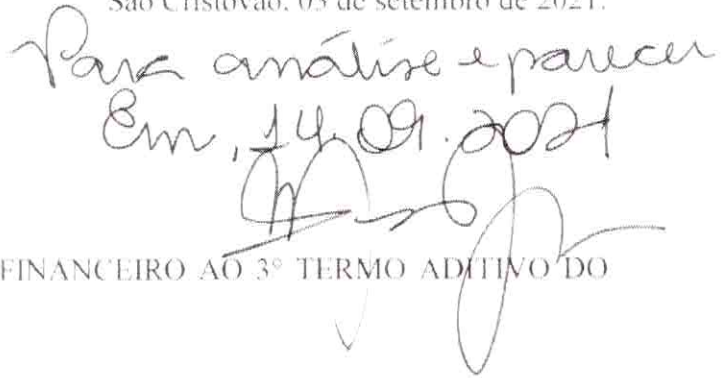 São Cristóvão, 03 de setembro de 2021.
Para análise e parecer
Em, 14.09.2021
FINANCEIRO AO 3º TERMO ADITIVO DO